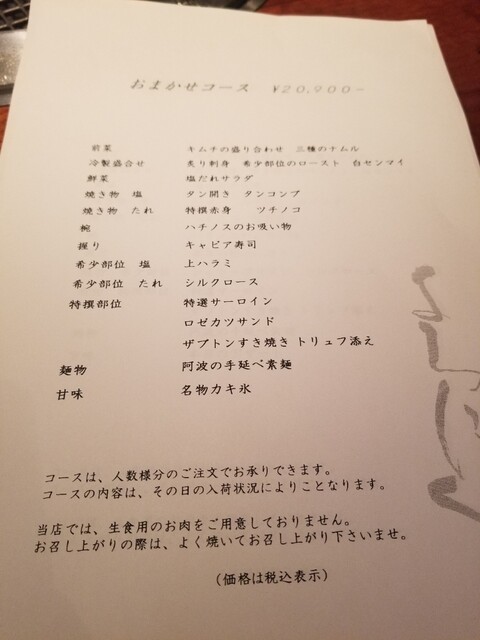 おまかせコース ¥20,900-
前菜 キムチの盛り合わせ 三種のナムル
冷製盛合せ 炙り刺身 希少部位のロースト 白センマイ
鮮菜 塩だれサラダ
焼き物 塩 タン開き タンコンプ
焼き物 たれ 特撰赤身 ツチノコ
椀 ハチノスのお吸い物
握り キャビア寿司
希少部位 塩 上ハラミ
希少部位 たれ シルクロース
特撰部位 特選サーロイン
ロゼカツサンド
ザブトンすき焼き トリュフ添え
麺物 阿波の手延べ素麺
甘味 名物カキ氷
コースは、人数様分のご注文でお承りできます。
コースの内容は、その日の入荷状況によりことなります。
当店では、生食用のお肉をご用意しておりません。
お召し上がりの際は、よく焼いてお召し上がり下さいませ。
(価格は税込表示)